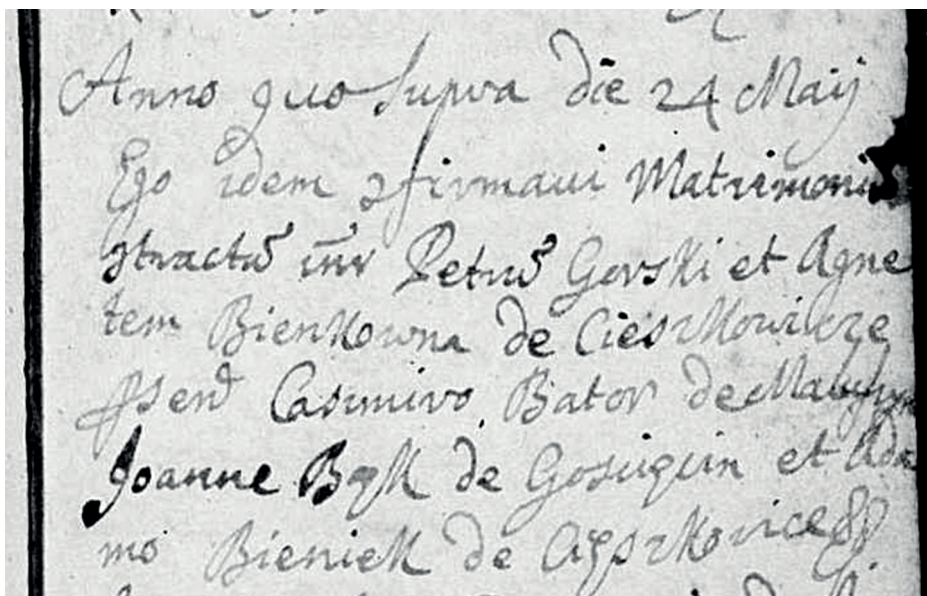 Anno quo supra die 24 Maij
Ego idem 9firmavi Matrimoniū
9tractū inr̄ Petrū Gorski et Agne
tem Bienkowna de Cieszkowicze
Casimiro Bator de
Joanne Bąk de et Ada
mo Bieniek de Cięszkovice